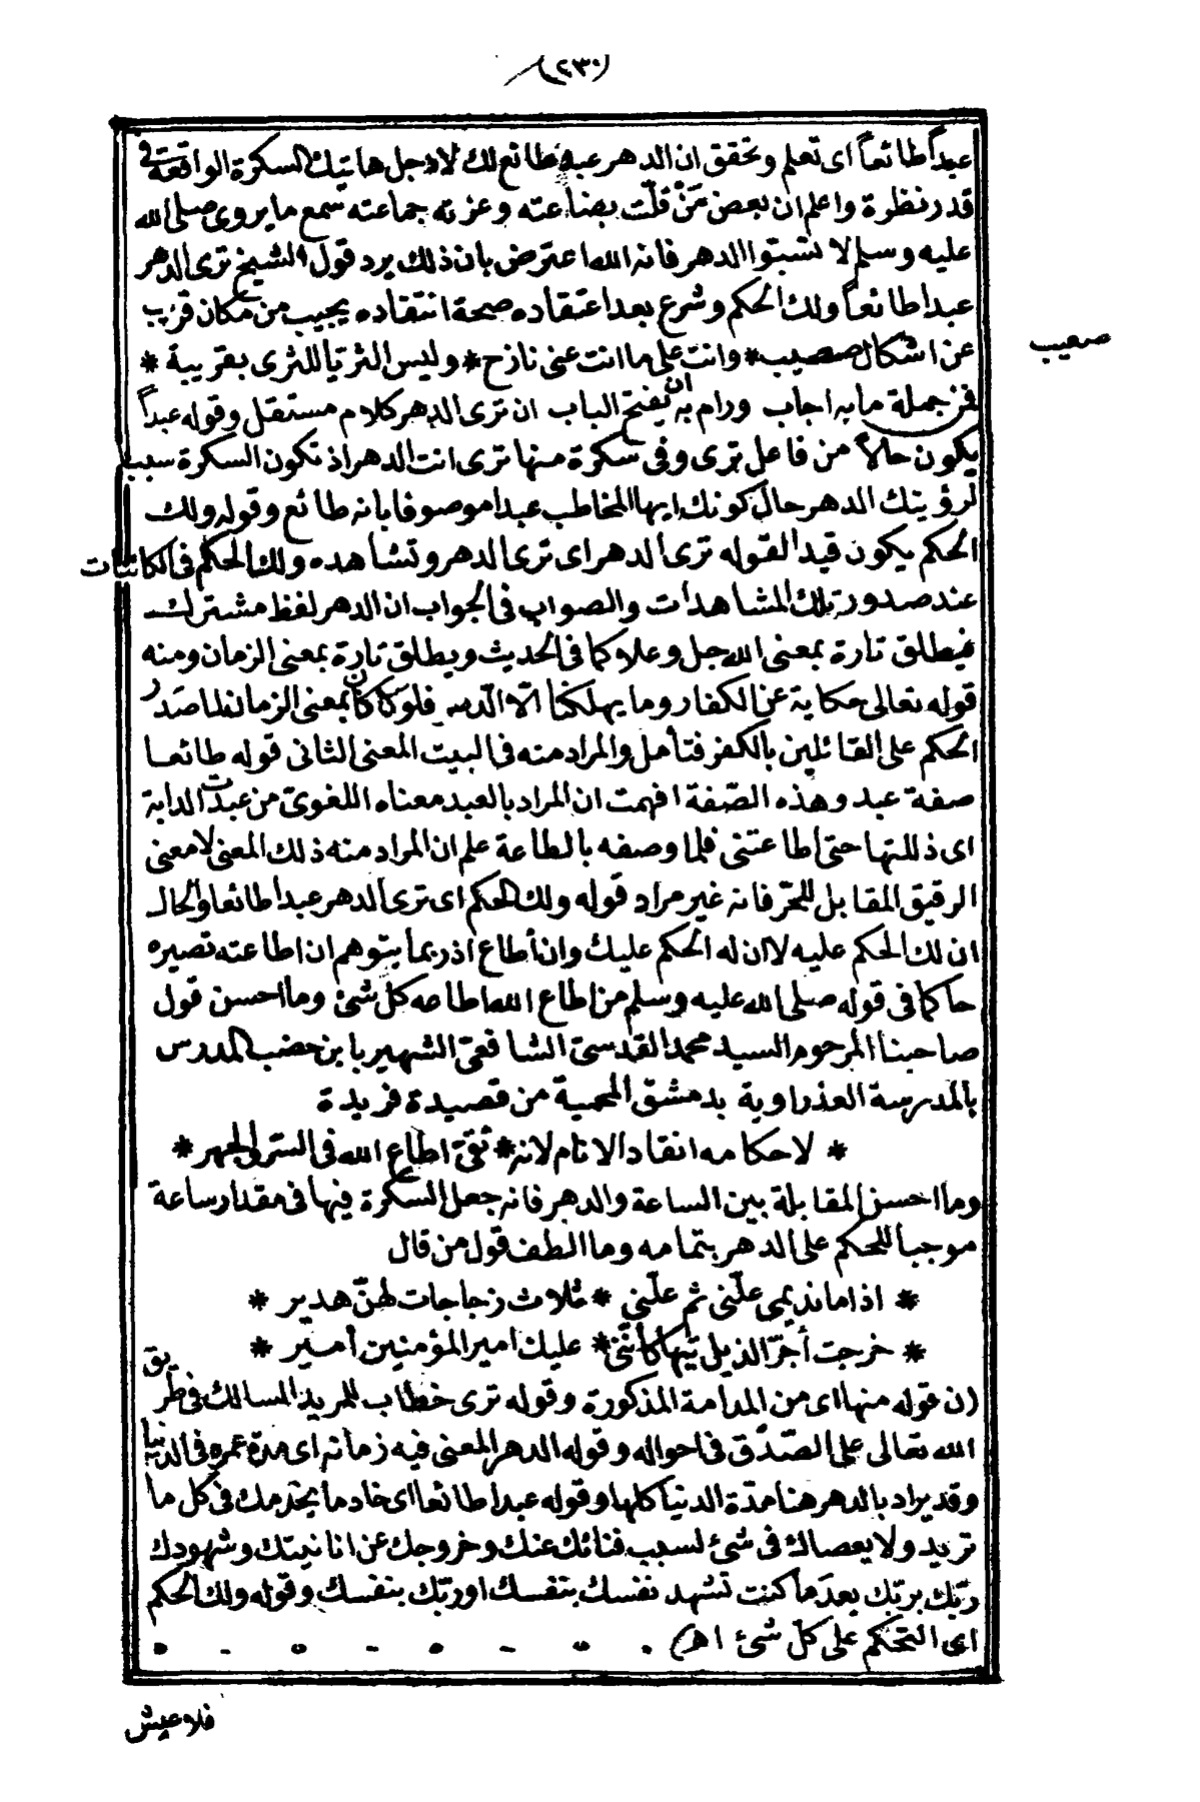 (٢٣٠)
عبداً طائعاً اى تعلم وتحقق ان الدهر عبد طائع لك لاجل هاتيك السكرة الواقعة فى
قدر نظرة واعلم ان بعض مَنْ قلّت بضاعته وعزته جماعته سمع ما يروى صلى الله
عليه وسلم لا تسبّوا الدهر فانه الله اعترض بان ذلك يرد قول الشيخ ترى الدهر
عبدا طائعاً ولك الحكم وشرع بعد اعتقاده صحة انتقاده يجيب من مكان قريب
عن اشكال صعيب * وانت على ما انت عنى نازح * وليس الثريا للثرى بقريبة *
صعيب
فمن جملة ما به اجاب ورام به ان يفتح الباب ان ترى الدهر كلام مستقل وقوله عبداً
يكون حالاً من فاعل ترى وفى سكرة منها ترى انت الدهر اذ تكون السكرة سببا
لرؤيتك الدهر حال كونك ايها المخاطب عبدا موصوفا بانه طائع وقوله ولك
الحكم يكون قيدا لقوله ترى الدهر اى ترى الدهر وتشاهده ولك الحكم فى الكائنات
عند صدور تلك المشاهدات والصواب فى الجواب ان الدهر لفظ مشترك
فيطلق تارة بمعنى الله جل وعلا كما فى الحديث ويطلق تارة بمعنى الزمان ومنه
قوله تعالى حكاية عن الكفار وما يهلكنا الّا الدّهر فلو كان بمعنى الزمان لما صَدَر
الحكم على القائلين بالكفر فتأمل والمراد منه فى البيت المعنى الثانى قوله طائعا
صفة عبد وهذه الصّفة افهمت ان المراد بالعبد معناه اللغوىّ من عبدت الدابة
اى ذللتها حتى اطاعتنى فلما وصفه بالطاعة علم ان المراد منه ذلك المعنى لا معنى
الرقيق المقابل للحرّ فانه غير مراد قوله ولك الحكم اى ترى الدهر عبدا طائعا والحال
ان لك الحكم عليه لا ان له الحكم عليك وان أطاع اذ ربما يتوهم ان اطاعته تصيره
حاكما فى قوله صلى الله عليه وسلم من اطاع الله اطاعه كل شئ وما احسن قول
صاحبنا المرحوم السيد محمد القدسىّ الشافعىّ الشهير بابن خضب المدرس
بالمدرسة العذراوية بدمشق المحمية من قصيدة فريدة
* لاحكامه انقاد الانام لانه * تقىّ اطاع الله فى السرّ والجهر *
وما احسن المقابلة بين الساعة والدهر فانه جعل السكرة فيها فى مقدار ساعة
موجباً للحكم على الدهر بتمامه وما الطف قول من قال
* اذا ما نديمى علّنى ثم علّنى * ثلاث زجاجات لهنّ هدير *
* خرجت أجرّ الذيل تيها كأنّنى * عليك امير المؤمنين أمير *
(ن قوله منها اى من المدامة المذكورة وقوله ترى خطاب للمريد السالك فى طريق
الله تعالى على الصّدق فى احواله وقوله الدهر المعنى فيه زمانه اى مدة عمره فى الدنيا
وقد يراد بالدهر هنا مدّة الدنيا كلها وقوله عبدا طائعا اى خادما يخدمك فى كل ما
تريد ولا يعصاك فى شئ لسبب فنائك عنك وخروجك عن انانيتك وشهودك
ربّك بربّك بعد ما كنت تشهد نفسك بنفسك او ربّك بنفسك وقوله ولك الحكم
اى التحكم على كلّ شئ اهـ)
فلا عيش